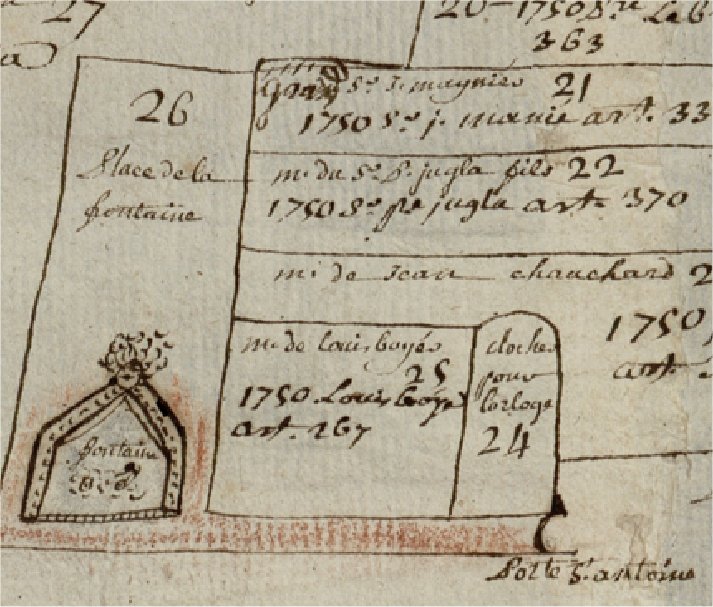 27
20 - 1750 Sr. Le
363
26
Place de la
fontaine
Sr. J. magnier 21
1750 Sr. j. manié art. 33
m. du Sr. P. jugla fils 22
1750 Sr. pe jugla art. 370
mi de Jean chauchard 2
1750
art.
m. de louis boyér
25
1750 Louis boyé
art. 267
cloche
pour
lorloge
24
fontaine
Porte St. antoine